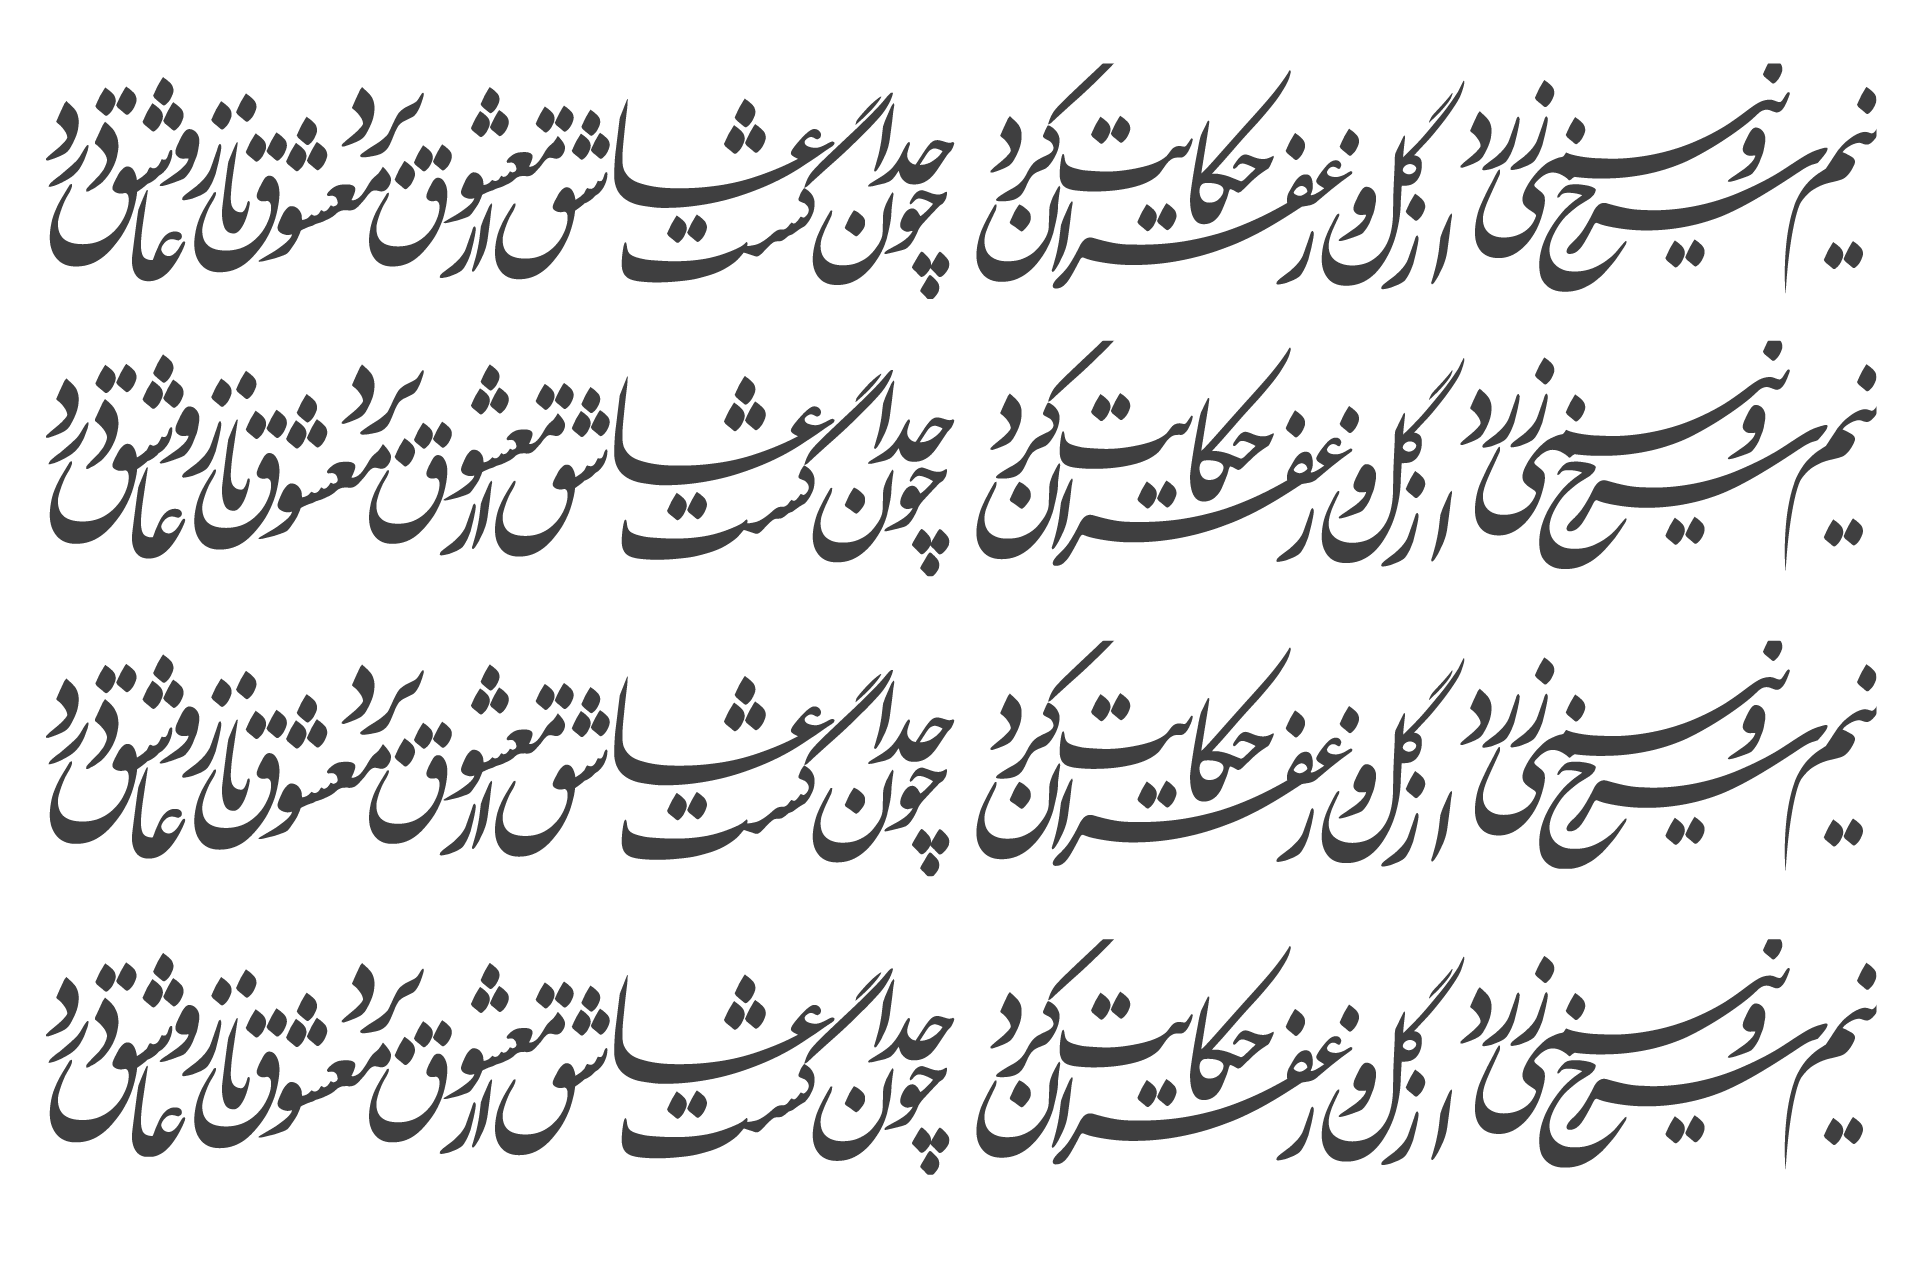 نیم سرخ و نیمی زرد از گل و زعفران حکایت کرد چون جدا گشت عاشق از معشوق برد معشوق ناز و عاشق درد
نیم سرخ و نیمی زرد از گل و زعفران حکایت کرد چون جدا گشت عاشق از معشوق برد معشوق ناز و عاشق درد
نیم سرخ و نیمی زرد از گل و زعفران حکایت کرد چون جدا گشت عاشق از معشوق برد معشوق ناز و عاشق درد
نیم سرخ و نیمی زرد از گل و زعفران حکایت کرد چون جدا گشت عاشق از معشوق برد معشوق ناز و عاشق درد